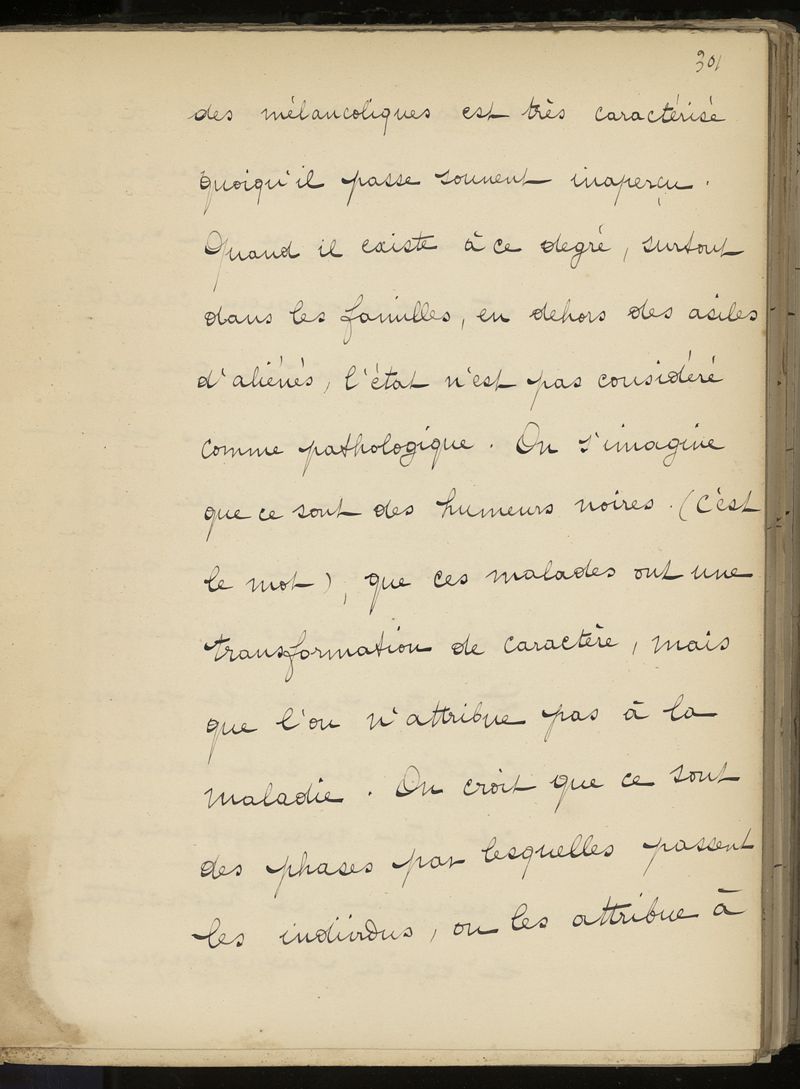 301
des mélancoliques est très caractérisé
quoiqu'il passe souvent inaperçu.
Quand il existe à ce degré, surtout
dans les familles, en dehors des asiles
d'aliénés, l'état n'est pas considéré
comme pathologique. On s'imagine
que ce sont des humeurs noires. (C'est
le mot), que ces malades ont une
transformation de caractère, mais
que l'on n'attribue pas à la
maladie. On croit que ce sont
des phases par lesquelles passent
les individus, on les attribue à